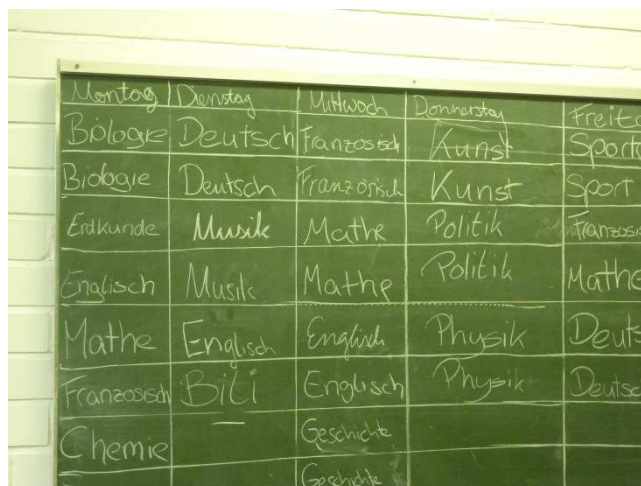 Montag Dienstag Mittwoch Donnerstag Freita
Biologie Deutsch Französisch Kunst Sport
Biologie Deutsch Französisch Kunst Sport
Erdkunde Musik Mathe Politik Französis
Englisch Musik Mathe Politik Mathe
Mathe Englisch Englisch Physik Deuts
Französisch Bili Englisch Physik Deutsc
Chemie Geschichte
Geschichte